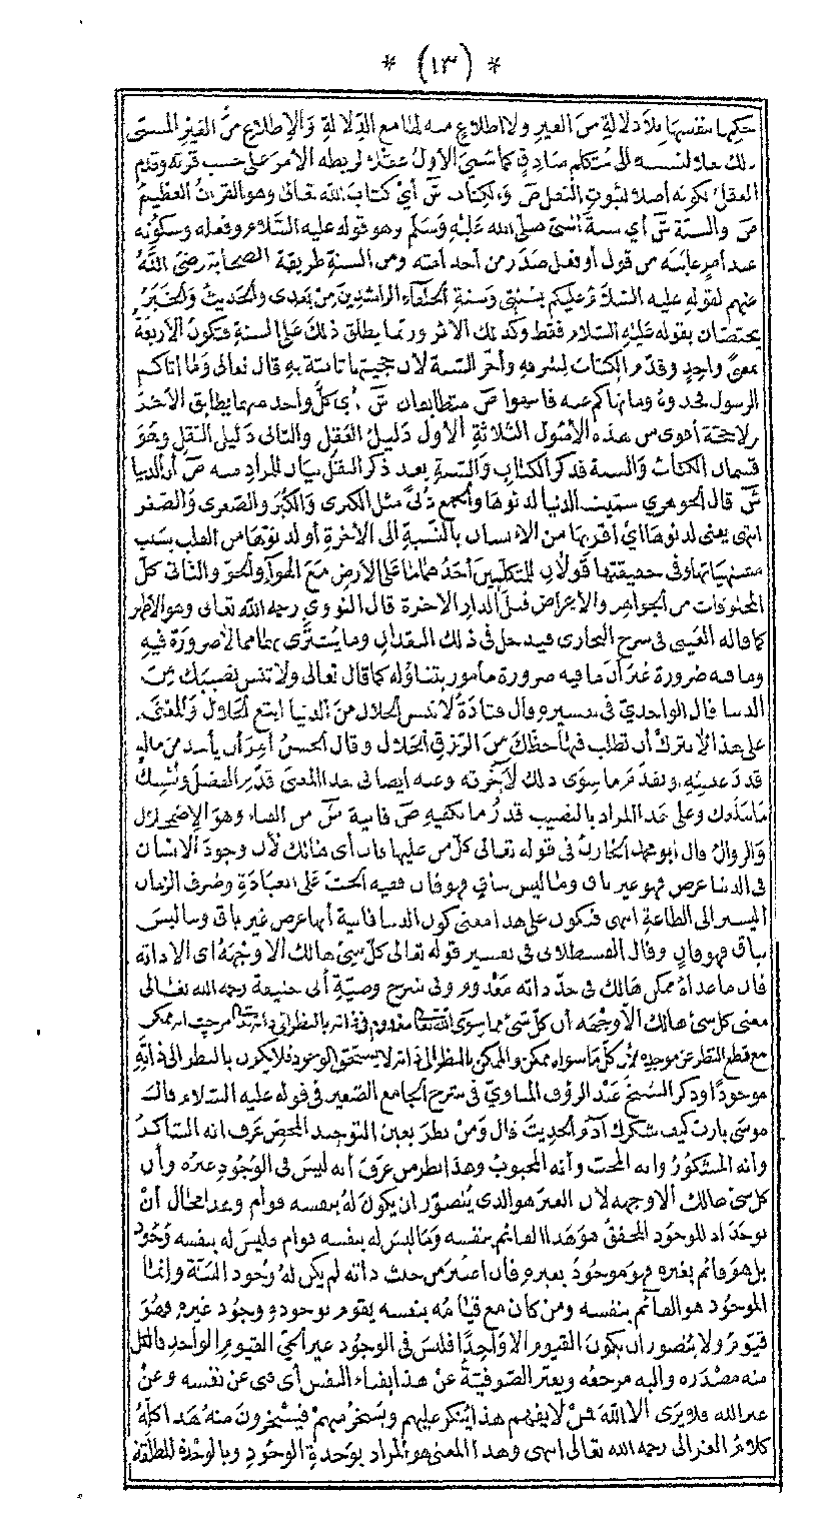 * (١٣) *
حكمها بنفسها بلا دلالة من الغير ولا اطلاع منه لها مع الدلالة والإطلاع من الغير المسمى
ذلك عادلنسبه الى متكلم صادق كما سمى الأول عقلا لربطه الأمر على حسب قربه وقدم
العقل لكونه أصلا لثبوت النقل ص والكتاب ش أي كتاب الله تعالى وهو القرآن العظيم
ص والسنة ش أي سنة النبى صلى الله عليه وسلم وهو قوله عليه السلام وفعله وسكوته
عند أمر عاينه من قول أو فعل صدر من أحد أمته ومن السنة طريقة الصحابة رضى الله
عنهم لقوله عليه السلام عليكم بسنتى وسنة الخلفاء الراشدين من بعدى والحديث والخبر
يختصان بقوله عليه السلام فقط وكذلك الأثر وربما يطلق ذلك على السنة فتكون الأربعة
بمعنى واحد وقدم الكتاب لشرفه وأخر السنة لأن حجيتها ثابتة به قال تعالى وما آتاكم
الرسول فخذوه وما نهاكم عنه فانتهوا ص متطابقان ش أى كل واحد منهما يطابق الآخر
ولا حجة أقوى من هذه الأصول الثلاثة الأول دليل العقل والثانى دليل النقل وهو
قسمان الكتاب والسنة فذكر الكتاب والسنة بعد ذكر النقل بيان للمراد منه ص أن الدنيا
ش قال الجوهرى سميت الدنيا لدنوها والجمع دنى مثل الكبرى والكبر والصغرى والصغر
انتهى يعنى لدنوها أى أقربها من الانسان بالنسبة الى الآخرة أو لدنوها من القلب بسبب
مشتهياتها وفى حقيقتها قولان للمتكلمين أحدهما ما على الأرض مع الهواء والجو والثانى كل
المخلوقات من الجواهر والأعراض قبل الدار الآخرة قال النووى رحمه الله تعالى وهو الأظهر
كما قاله العينى فى شرح البخارى فيدخل فى ذلك النقدان وما يشترى بهما مما لا ضرورة فيه
وما فيه ضرورة غير أن ما فيه ضرورة مأمور بتناوله كما قال تعالى ولا تنس نصيبك من
الدنيا قال الواحدى فى تفسيره وقال قتادة لا تنس الحلال من الدنيا ابتغ الحلال والمعنى
على هذا لا تترك أن تطلب فيها حظك من الرزق الحلال وقال الحسن أمر أن يأخذ من ماله
قدر عيشه ويقدم ما سوى ذلك لآخرته وعنه أيضا فى هذا المعنى قدم الفضل وأمسك
ما يبلغك وعلى هذا المراد بالنصيب قدر ما يكفيه ص فانية ش من الفناء وهو الاضمحلال
والزوال قال أبو محمد الخازن فى قوله تعالى كل من عليها فان أى هالك لأن وجود الانسان
فى الدنيا عرض فهو غير باق وما ليس بباق فهو فان ففيه الحث على العبادة وصرف الزمان
اليسير الى الطاعة انتهى فيكون على هذا معنى كون الدنيا فانية أنها عرض غير باق وما ليس
بباق فهو فان وقال القسطلانى فى تفسير قوله تعالى كل شئ هالك الا وجهه أى الا ذاته
فان ما عداه ممكن هالك فى حد ذاته معدوم وفى شرح وصية أبى حنيفة رحمه الله تعالى
معنى كل شئ هالك الا وجهه أن كل شئ مما سوى الله تعالى معدوم فى ذاته بالنظر الى ذاته من حيث انه ممكن
مع قطع النظر عن موجده لأن كل ما سواه ممكن والممكن بالنظر الى ذاته لا يستحق الوجود فلا يكون بالنظر الى ذاته
موجودا وذكر الشيخ عبد الرؤف المناوى فى شرح الجامع الصغير فى قوله عليه السلام قال
موسى يا رب كيف شكرك آدم الحديث قال ومن نظر بعين التوحيد المحض عرف انه الشاكر
وأنه المشكور وانه المحب وأنه المحبوب وهذا نظر من عرف أنه ليس فى الوجود غيره وأن
كل شئ هالك الا وجهه لأن الغير هو الذى يتصور ان يكون له بنفسه قوام وهذا محال أن
يوجد اذ الموجود المحقق هو هذا القائم بنفسه وما ليس له بنفسه قوام فليس له بنفسه وجود
بل هو قائم بغيره فهو موجود بغيره فان اعتبر من حيث ذاته لم يكن له وجود البتة وانما
الموجود هو القائم بنفسه ومن كان مع قيامه بنفسه يقوم بوجوده وجود غيره فهو
قيوم ولا يتصور ان يكون القيوم الا واحدا فليس فى الوجود غير الحى القيوم الواحد فالكل
منه مصدره واليه مرجعه ويعبر الصوفية عن هذا بفناء النفس أى فنى عن نفسه وعن
غير الله فلا يرى الا الله فمن لا يفهم هذا ينكر عليهم ويسخر منهم فيسخرون منه هذا كله
كلام الغزالى رحمه الله تعالى انتهى وهذا المعنى هو المراد بوحدة الوجود وبالوحدة المطلقة